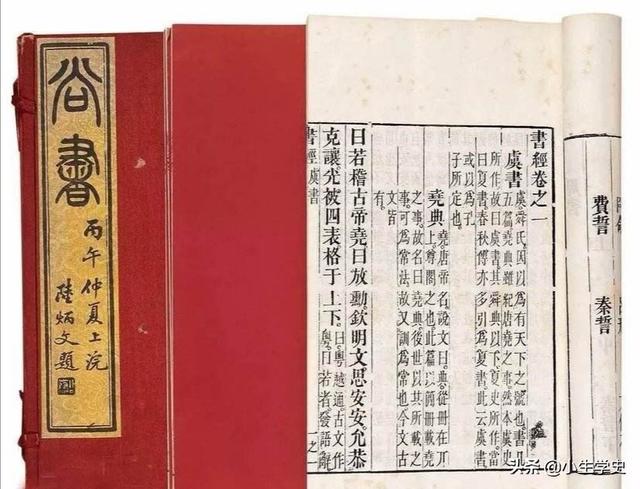 尚書
丙午仲夏上浣
陸炳文題
費誓
秦誓
書經卷之一
虞書
虞舜氏因以為有天下之號也書凡
五篇堯典雖紀唐堯之事然本虞史
所作故曰虞書其舜典以下夏史所作當
曰夏書春秋傳亦多引為夏書此云虞書
或以為孔
子所定也
堯典
堯唐帝名說文曰典從冊在丌
上尊閣之也此篇以簡冊載堯
之事故名曰堯典後世以其所載之
事可為常法故又訓為常也今文古
文皆
有
曰若稽古帝堯曰放勳欽明文思安安允恭
克讓光被四表格于上下
曰粵越通古文作
粵曰若者發語辭
書經虞書
之一
头条 @小生学史